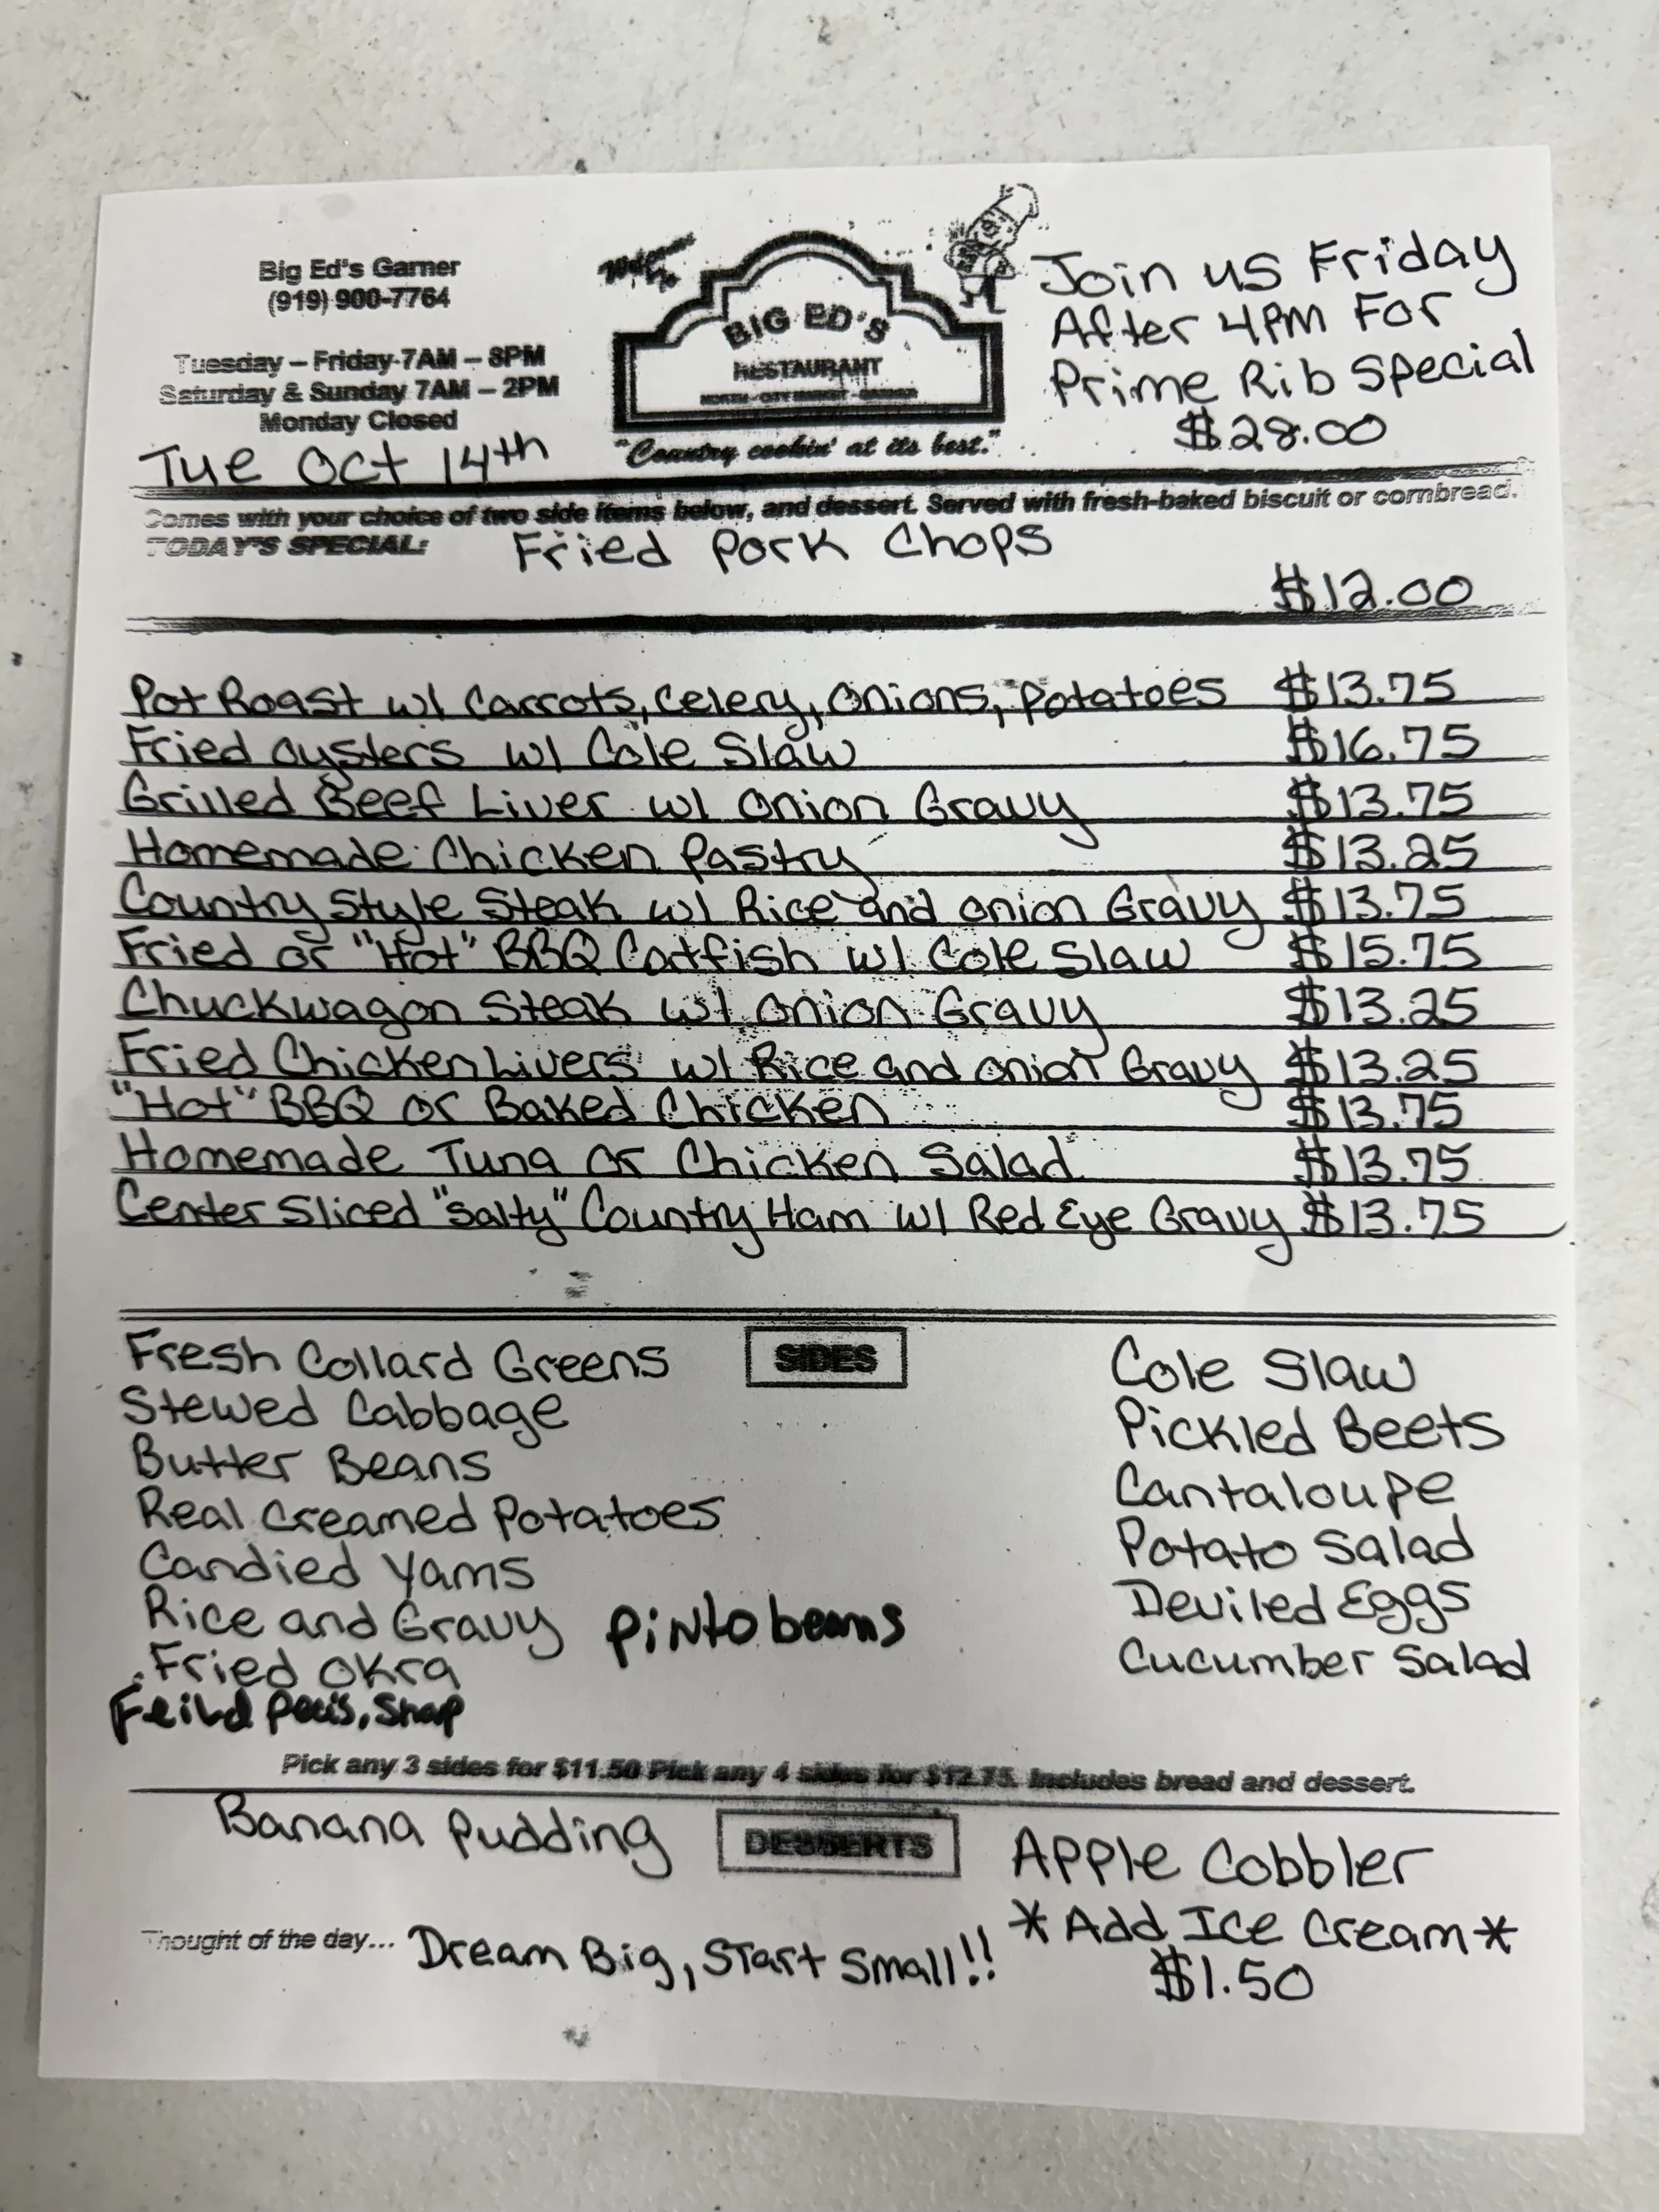 Big Ed's Garner
(919) 900-7764
Tuesday – Friday 7AM – 8PM
Saturday & Sunday 7AM – 2PM
Monday Closed
Tue Oct 14th
Welcome To
BIG ED'S
RESTAURANT
NORTH - CITY MARKET - GARNER
"Country cookin' at its best."
Join us Friday
After 4PM For
Prime Rib Special
$28.00
Comes with your choice of two side items below, and dessert. Served with fresh-baked biscuit or cornbread.
TODAY'S SPECIAL: Fried Pork Chops
$12.00
Pot Roast w/ Carrots, Celery, Onions, Potatoes $13.75
Fried Oysters w/ Cole Slaw $16.75
Grilled Beef Liver w/ Onion Gravy $13.75
Homemade Chicken Pastry $13.25
Country Style Steak w/ Rice and Onion Gravy $13.75
Fried or "Hot" BBQ Catfish w/ Cole Slaw $15.75
Chuckwagon Steak w/ Onion Gravy $13.25
Fried Chicken Livers w/ Rice and Onion Gravy $13.25
"Hot" BBQ or Baked Chicken $13.75
Homemade Tuna or Chicken Salad $13.75
Center Sliced "Salty" Country Ham w/ Red Eye Gravy $13.75
SIDES
Fresh Collard Greens
Stewed Cabbage
Butter Beans
Real Creamed Potatoes
Candied Yams
Rice and Gravy
Pinto beans
Fried Okra
Feild Peas, Snap
Cole Slaw
Pickled Beets
Cantaloupe
Potato Salad
Deviled Eggs
Cucumber Salad
Pick any 3 sides for $11.50 Pick any 4 sides for $12.75. Includes bread and dessert.
DESSERTS
Banana Pudding
Apple Cobbler
*Add Ice Cream*
$1.50
Thought of the day... Dream Big, Start Small!!